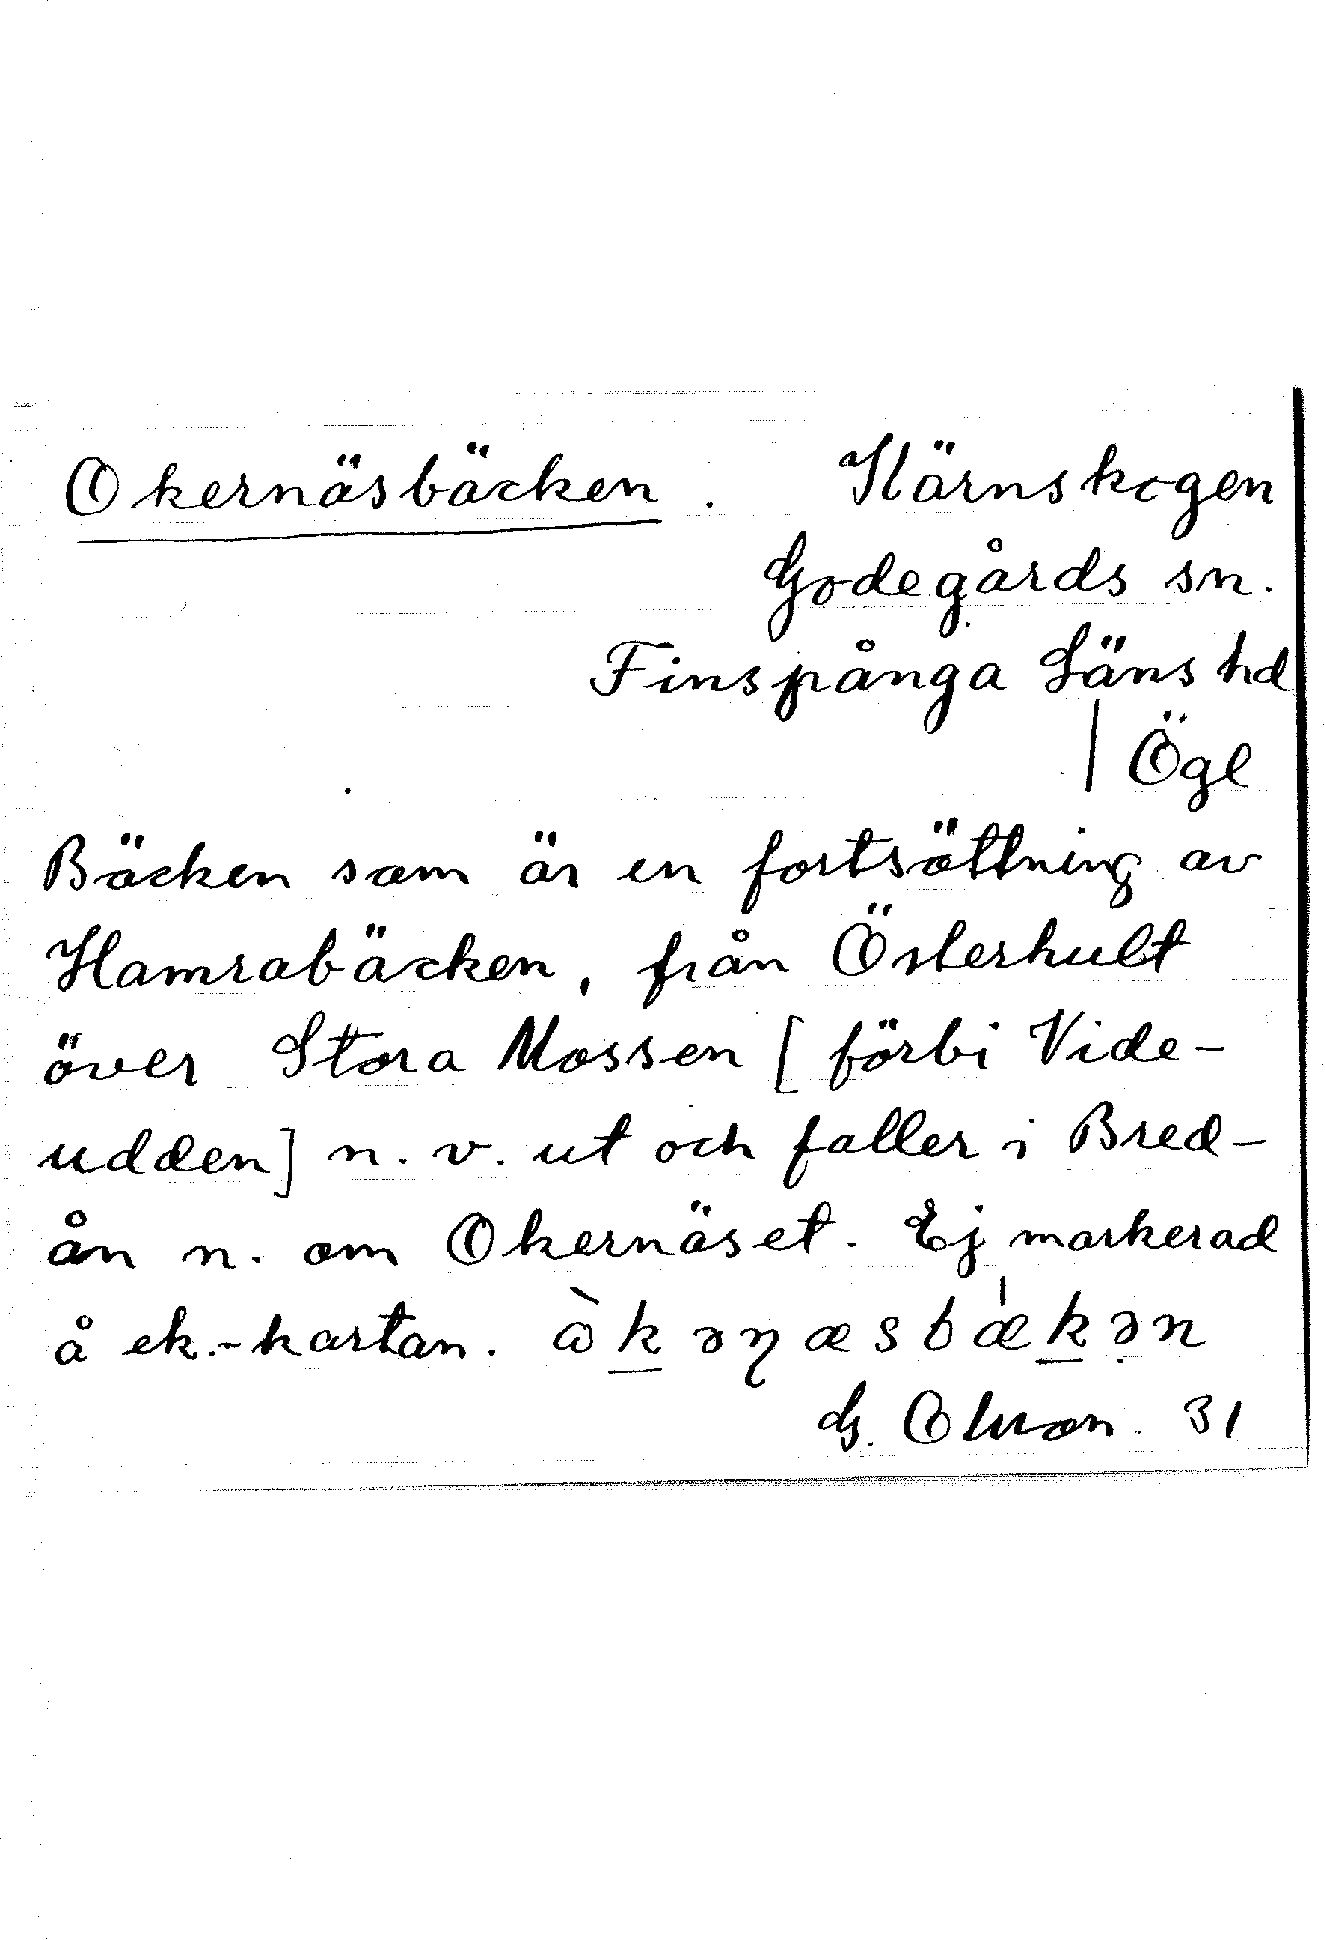 Okernäsbäcken. Härnskogen
Godegårds sn.
Finspånga Läns hd
| Ögl
Bäcken som är en fortsättning av
Hamrabäcken, från Österhult
över Stora Mossen [förbi Vide-
udden] n. v. ut och faller i Bred-
ån n. om Okernäset. Ej markerad
å ek.-kartan.
G. 31